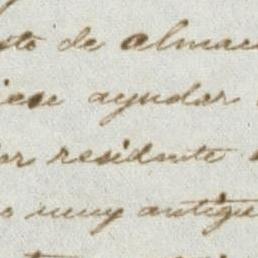 sto de almace
iese ayudar
or residente
o muy antigu